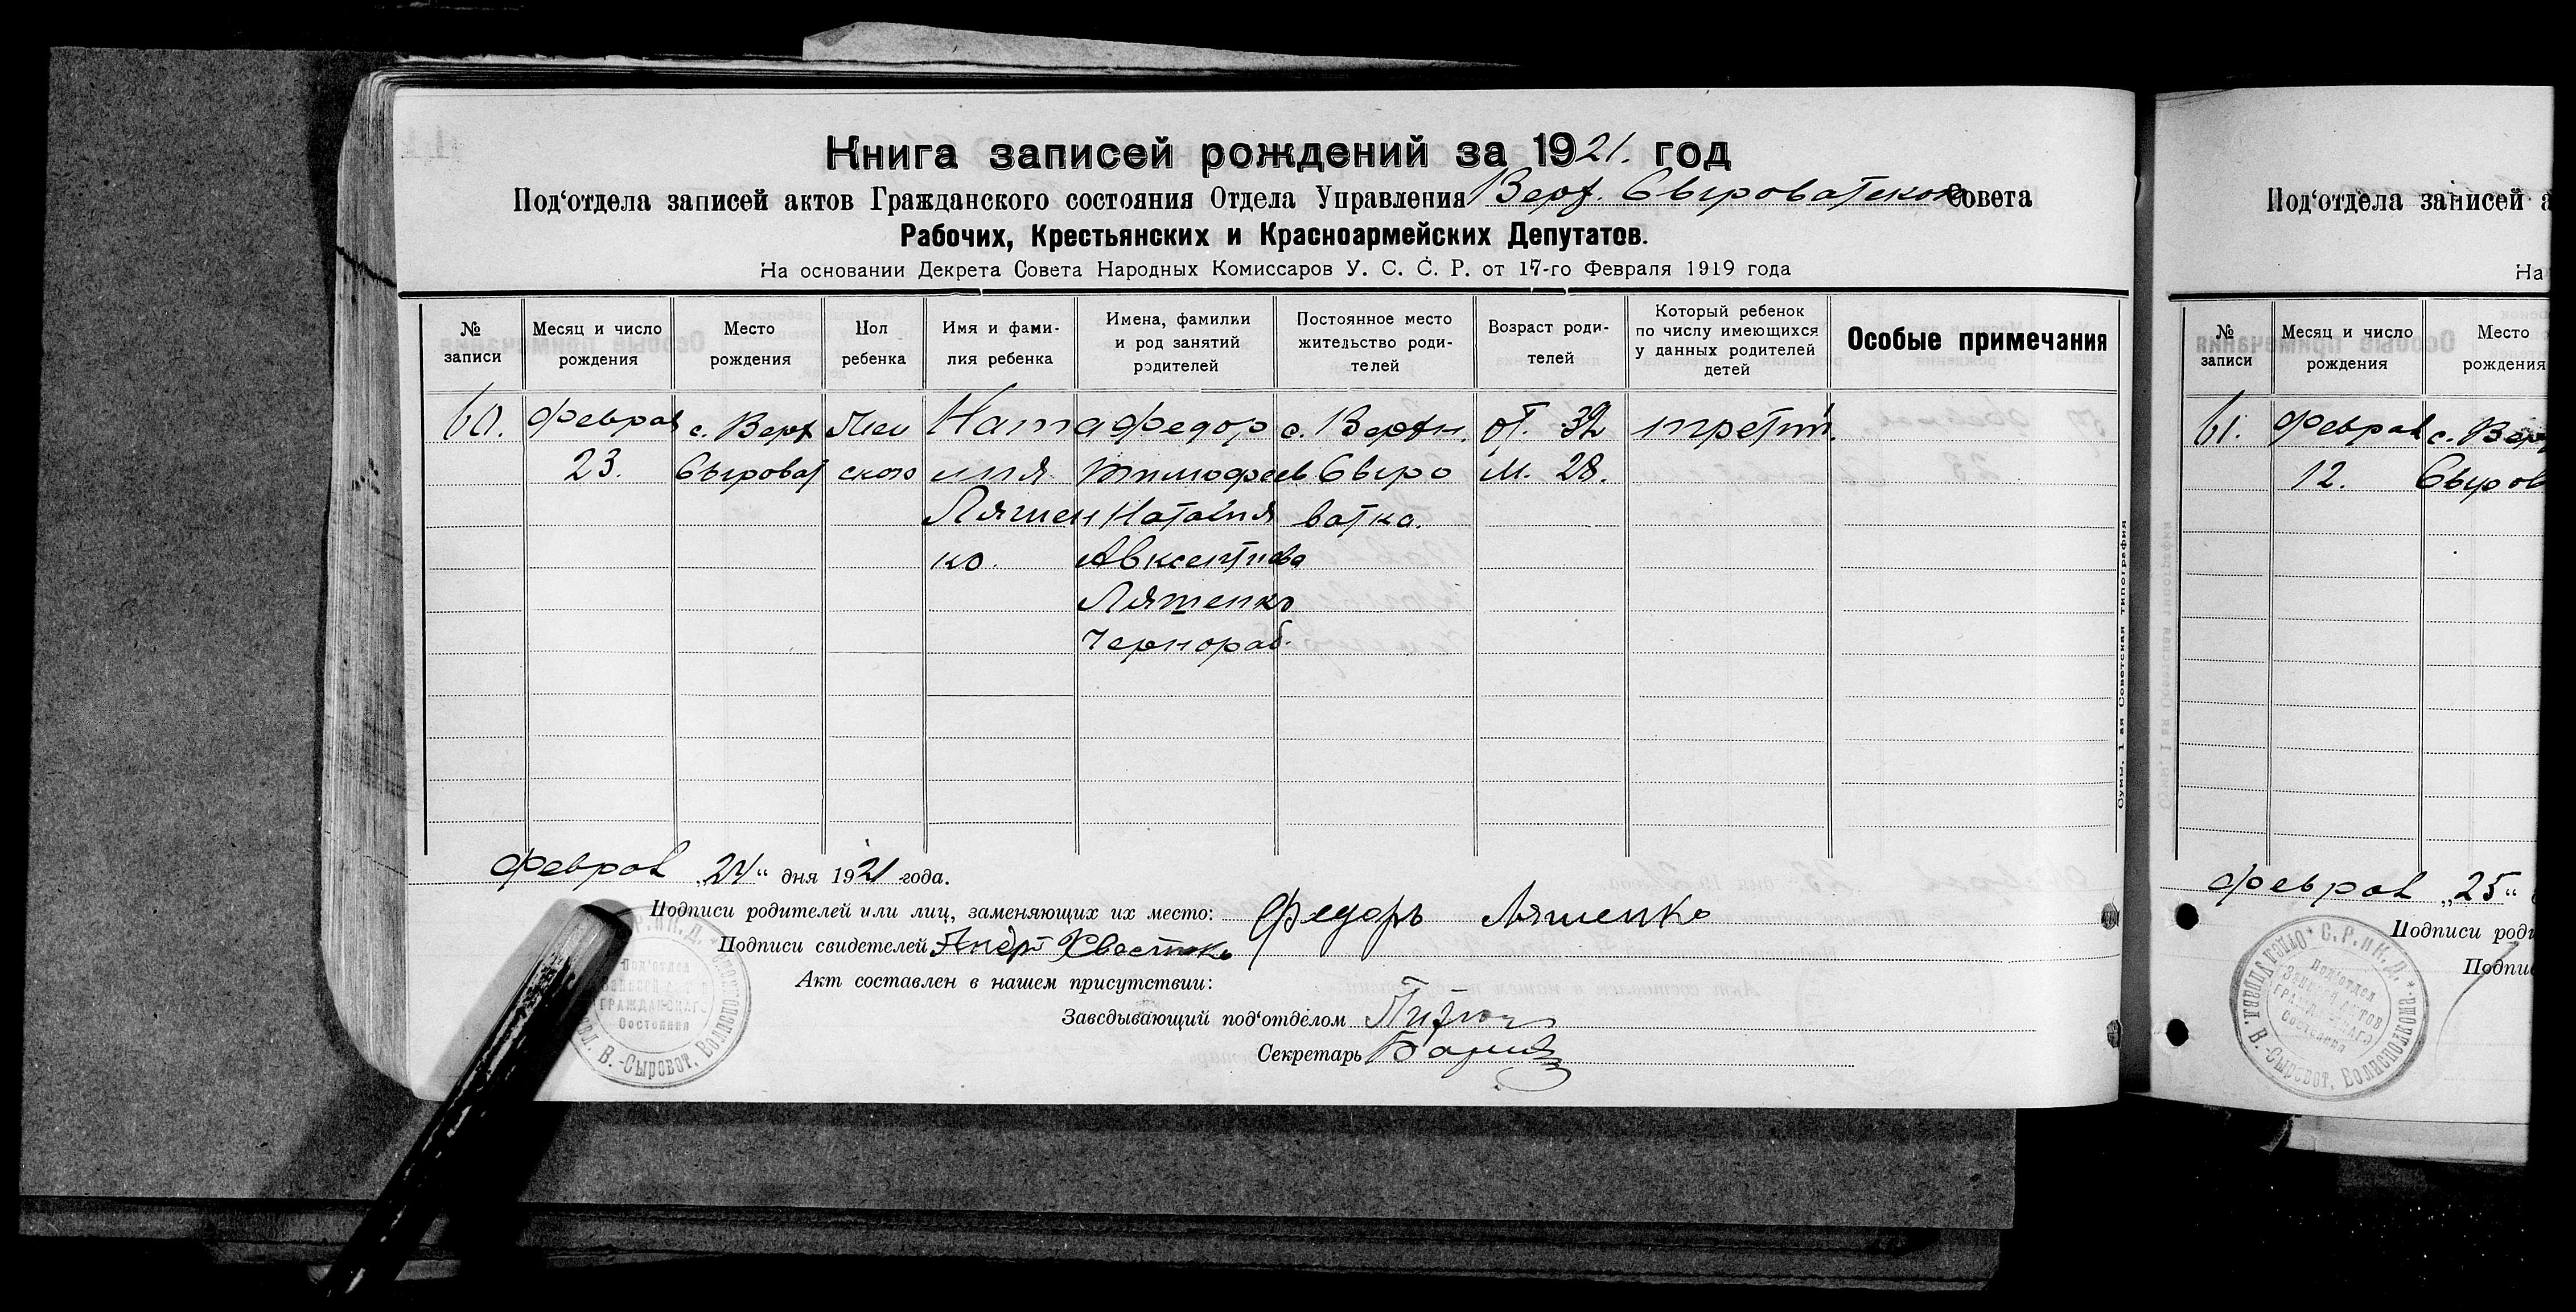 Книга записей рождений за 1921. год
Под‘отдела записей актов Гражданского состояния Отдела Управления Верх. Сыроватского Совета
Рабочих, Крестьянских и Красноармейских Депутатов.
На основании Декрета Совета Народных Комиссаров У. С. С. Р. от 17-го Февраля 1919 года
№ записи
Месяц и число рождения
Место рождения
Пол ребенка
Имя и фами-
лия ребенка
Имена, фамилии
и род занятий
родителей
Постоянное место
жительство роди-
телей
Возраст роди-
телей
Который ребенок
по числу имеющихся
у данных родителей
детей
Особые примечания
60.
Феврал
23.
с. Верх
Сыроват
Жен
ского
Ната
лия
Ляшен
ко.
Федор
Тимофеев
Наталия
Авксентиева
Ляшенко
Чернораб.
с. Верхн.
Сыро
ватка.
От. 32
М. 28.
третий.
Феврал „24“ дня 1921 года.
Подписи родителей или лиц, заменяющих их место: Федоръ Ляшенко
Подписи свидетелей
Акт составлен в нашем присутствии:
Заведывающий под‘отделом
Секретарь
Под‘отдел
ГРАЖДАНСКАГО
Состояния
В.-Сыроват. Волисполкома
Сумы, 1 ая Советская типография
Под‘отдела записей
На
№ записи
Месяц и число рождения
Место рождения
61.
Феврал
12.
с. Верх
Сыров
Феврал „25“
Подписи роди
Подпи
ОТДЕЛ УПРАВЛ. В.-Сыроват. Волисполкома. С. Р. и К. Д.
Под‘отдел
Записей Актов
ГРАЖДАНСКАГО
Состояния